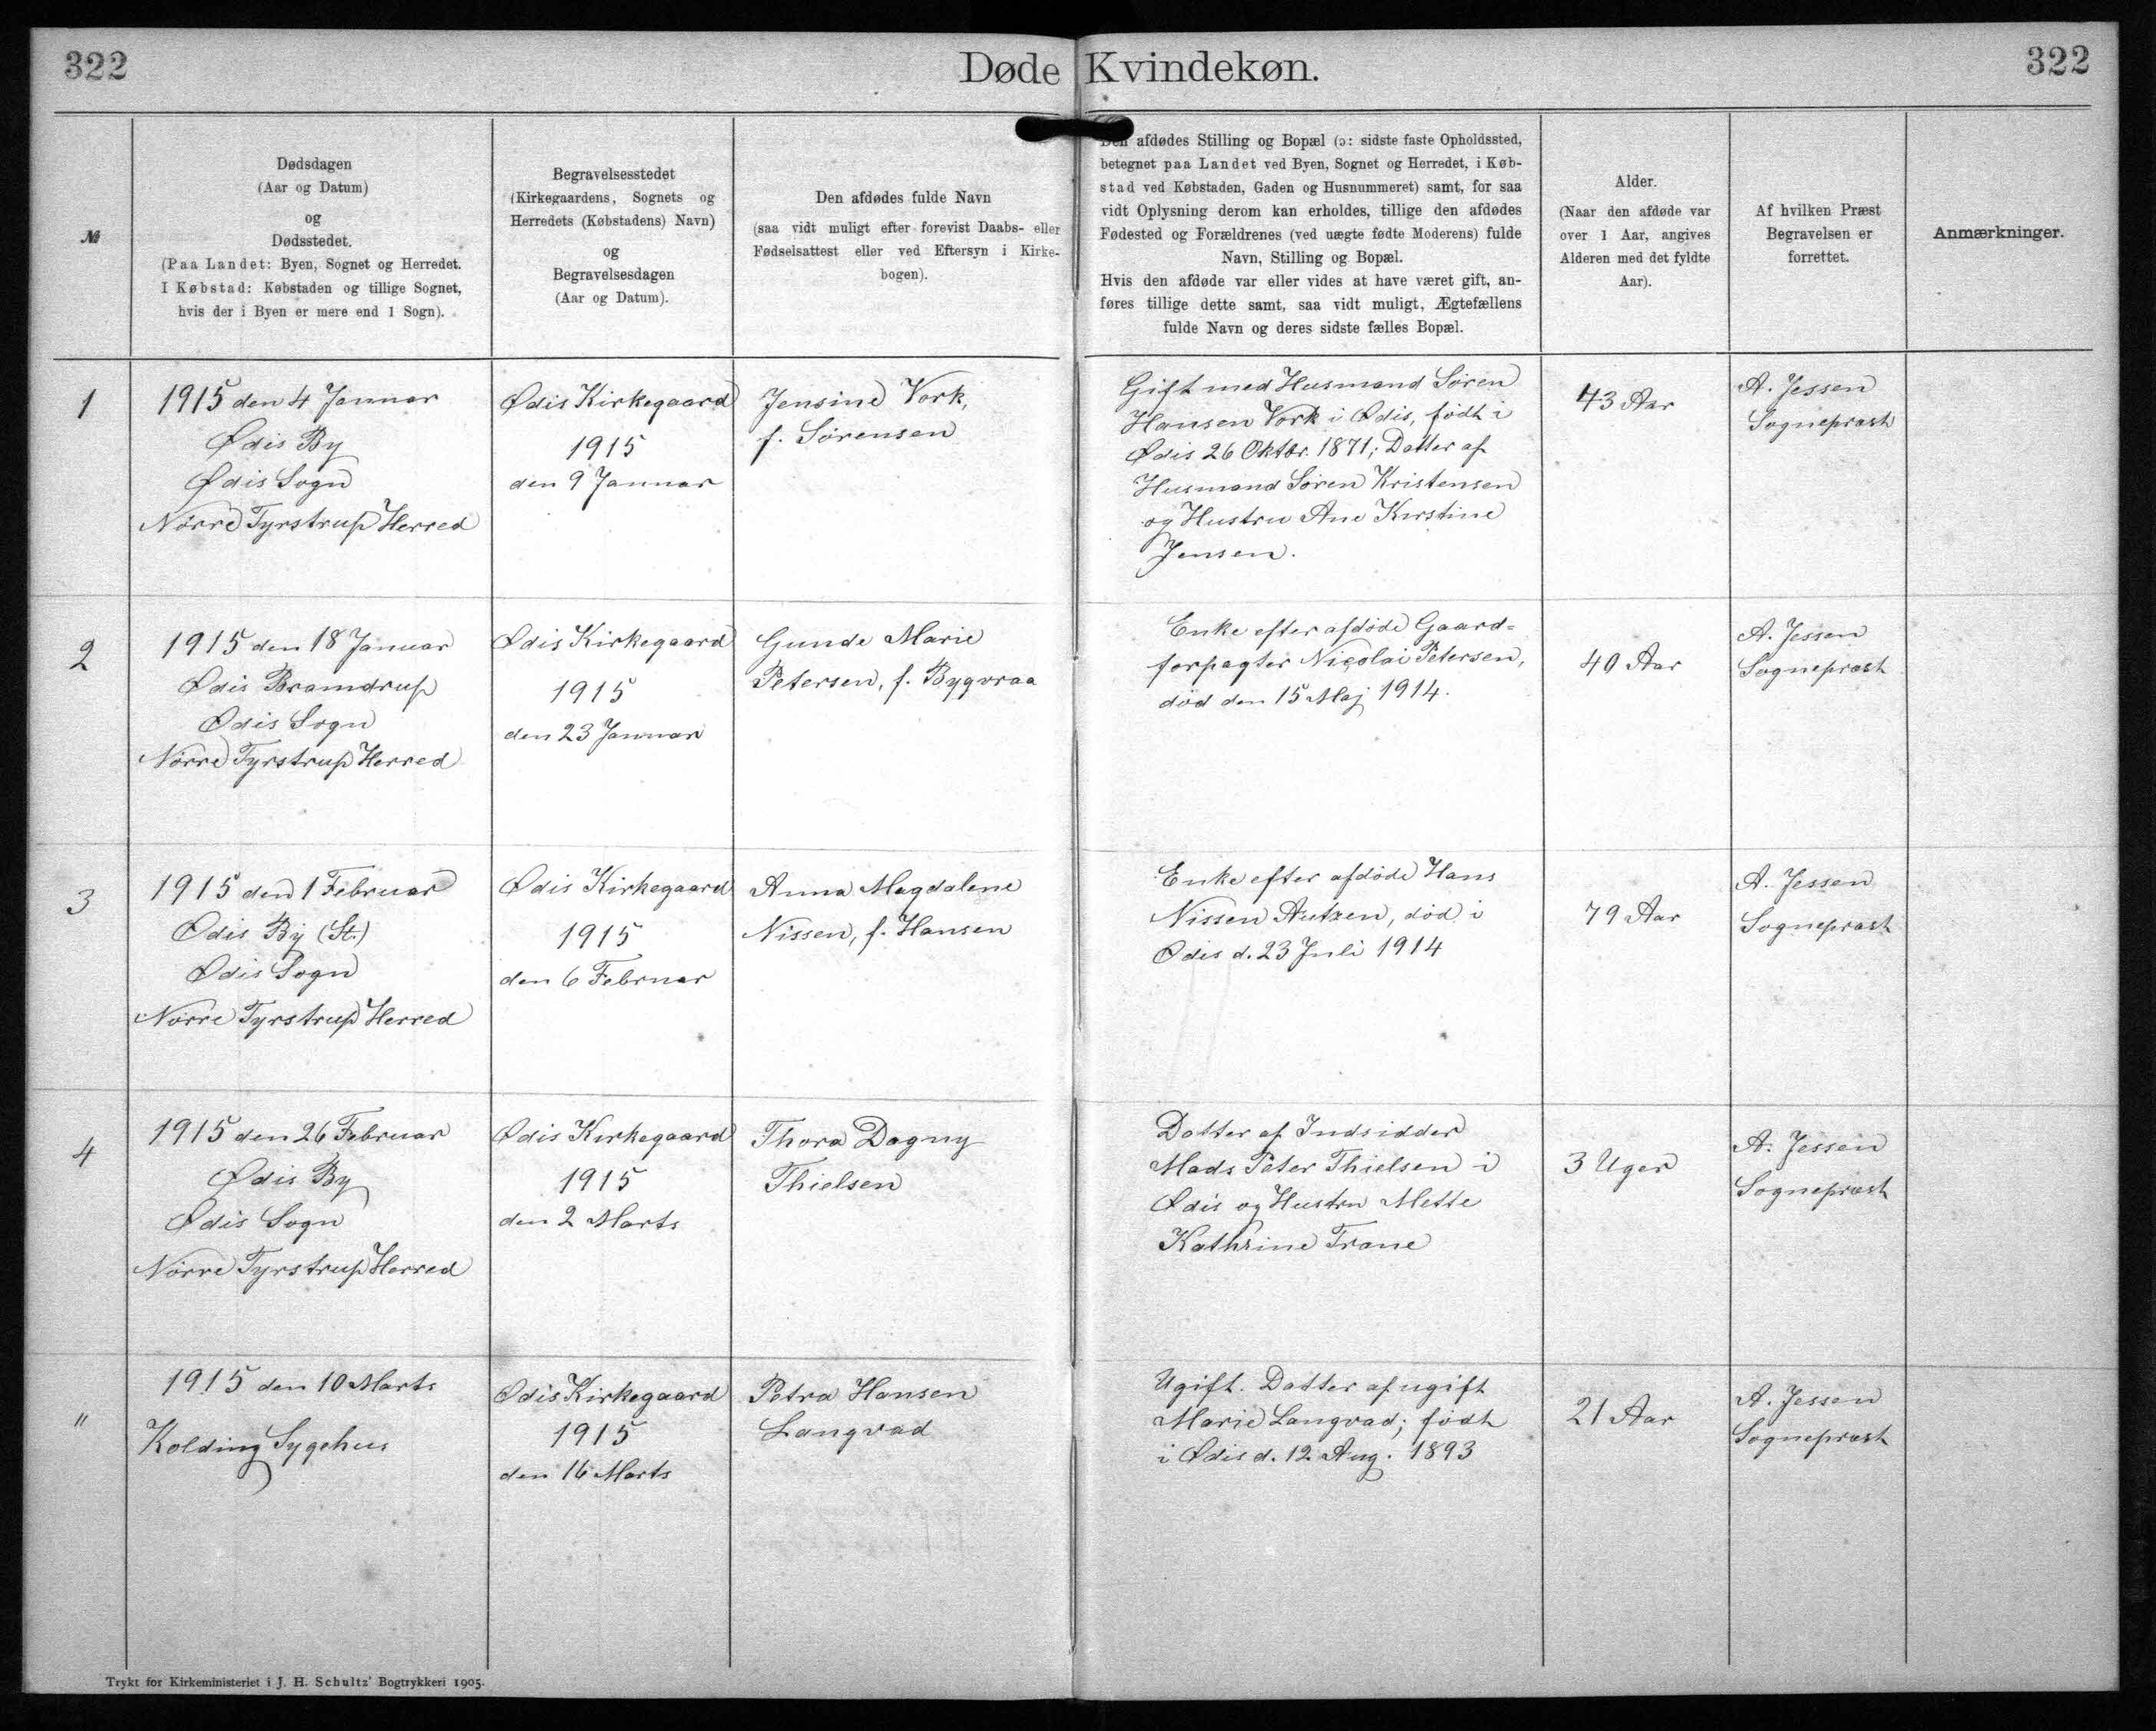 322
Døde Kvindekøn.
322
№
Dødsdagen
(Aar og Datum)
og
Dødsstedet.
(Paa Landet: Byen, Sognet og Herredet.
I Købstad: Købstaden og tillige Sognet,
hvis der i Byen er mere end 1 Sogn).
Begravelsesstedet
(Kirkegaardens, Sognets og
Herredets (Købstadens) Navn)
og
Begravelsesdagen
(Aar og Datum).
Den afdødes fulde Navn
(saa vidt muligt efter forevist Daabs- eller
Fødselsattest eller ved Eftersyn i Kirke-
bogen).
Den afdødes Stilling og Bopæl (ɔ: sidste faste Opholdssted,
betegnet paa Landet ved Byen, Sognet og Herredet, i Køb-
stad ved Købstaden, Gaden og Husnummeret) samt, for saa
vidt Oplysning derom kan erholdes, tillige den afdødes
Fødested og Forældrenes (ved uægte fødte Moderens) fulde
Navn, Stilling og Bopæl.
Hvis den afdøde var eller vides at have været gift, an-
føres tillige dette samt, saa vidt muligt, Ægtefællens
fulde Navn og deres sidste fælles Bopæl.
Alder.
(Naar den afdøde var
over 1 Aar, angives
Alderen med det fyldte
Aar).
Af hvilken Præst
Begravelsen er
forrettet.
Anmærkninger.
1
1915 den 4 Januar
Ødis By
Ødis Sogn
Nörre Tyrstrup Herred
Ødis Kirkegaard
1915
den 9 Januar
Jensine Vork,
f. Sörensen
Gift med Husmand Sören
Hansen Vork i Ødis, födt i
Ødis 26 Oktbr. 1871; Datter af
Husmand Sören Kristensen
og Hustru Ane Kirstine
Jensen.
43 Aar
A. Jessen
Sognepræst
2
1915 den 18 Januar
Ødis Bramdrup
Ødis Sogn
Nörre Tyrstrup Herred
Ødis Kirkegaard
1915
den 23 Januar
Gunde Marie
Petersen, f. Bygvraa
Enke efter afdöde Gaard=
forpagter Nicolai Petersen,
död den 15 Maj 1914.
40 Aar
A. Jessen
Sognepræst
3
1915 den 1 Februar
Ødis By (St.)
Ødis Sogn
Nörre Tyrstrup Herred
Ødis Kirkegaard
1915
den 6 Februar
Anna Magdalene
Nissen, f. Hansen
Enke efter afdöde Hans
Nissen Autzen, död i
Ødis d. 23 Juli 1914
79 Aar
A. Jessen
Sognepræst
4
1915 den 26 Februar
Ødis By
Ødis Sogn
Nörre Tyrstrup Herred
Ødis Kirkegaard
1915
den 2 Marts
Thora Dagny
Thielsen
Datter af Indsidder
Mads Peter Thielsen i
Ødis og Hustru Mette
Kathrine Trane
3 Uger
A. Jessen
Sognepræst
"
1915 den 10 Marts
Kolding Sygehus
Ødis Kirkegaard
1915
den 16 Marts
Petra Hansen
Langvad
Ugift. Datter af ugift
Marie Langvad; födt
i Ødis d. 12 Aug. 1893
21 Aar
A. Jessen
Sognepræst
Trykt for Kirkeministeriet i J. H. Schultz' Bogtrykkeri 1905.